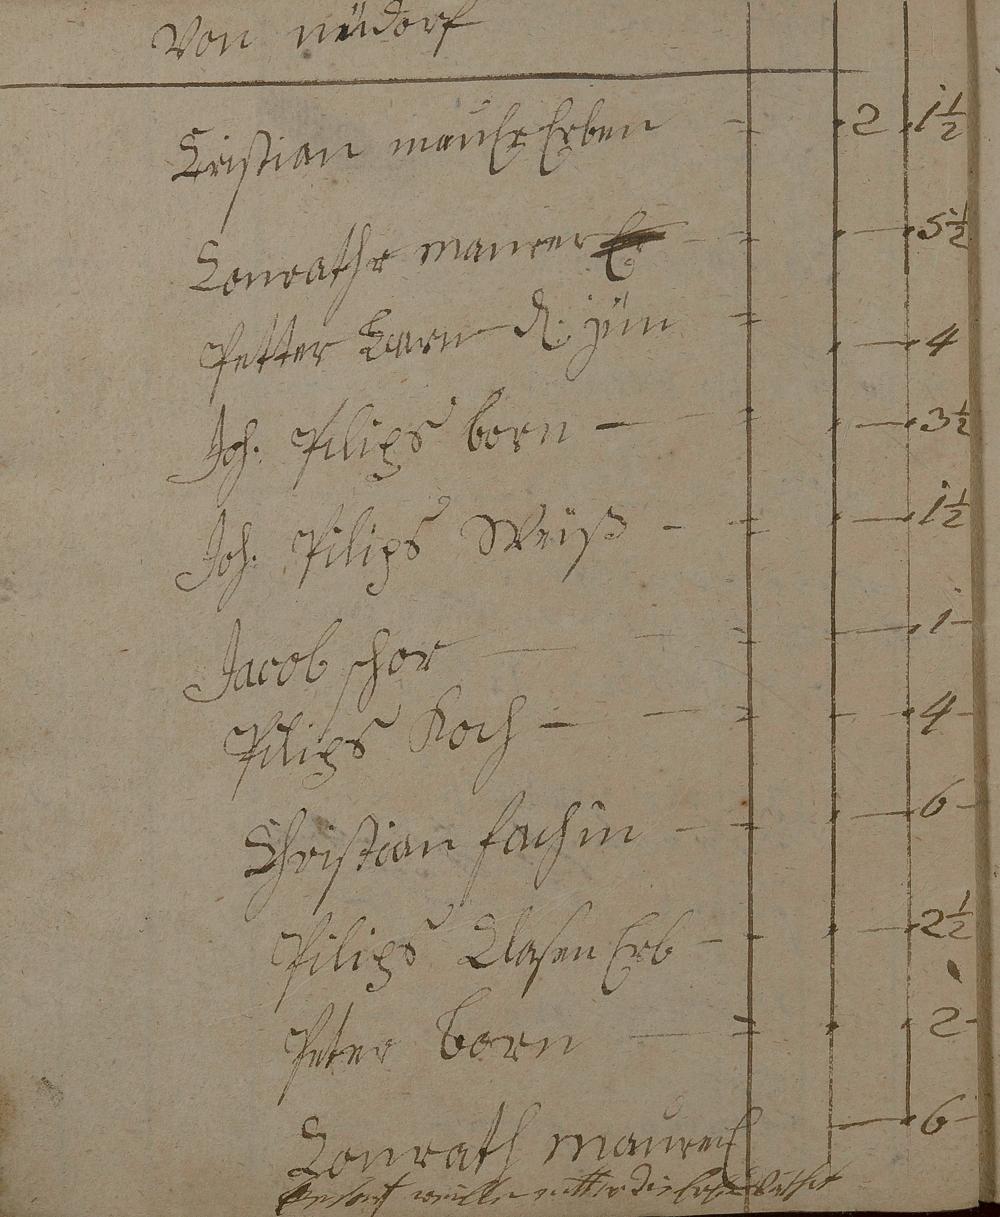 Von neüdorf
Cristian maurer Erben — — 2 1½
Conrathr maurer — — — 5½
Petter Born d. jün — — 4
Joh. Pilips born — — — 3½
Joh. Pilips Weiß — — — 1½
Jacob schor — — — 1
Pilips Koch — — — 4
Christian fachin — — — 6
Pilips Clasen Erb — — 2½
Peter born — — 2
Conrath maurer — 6